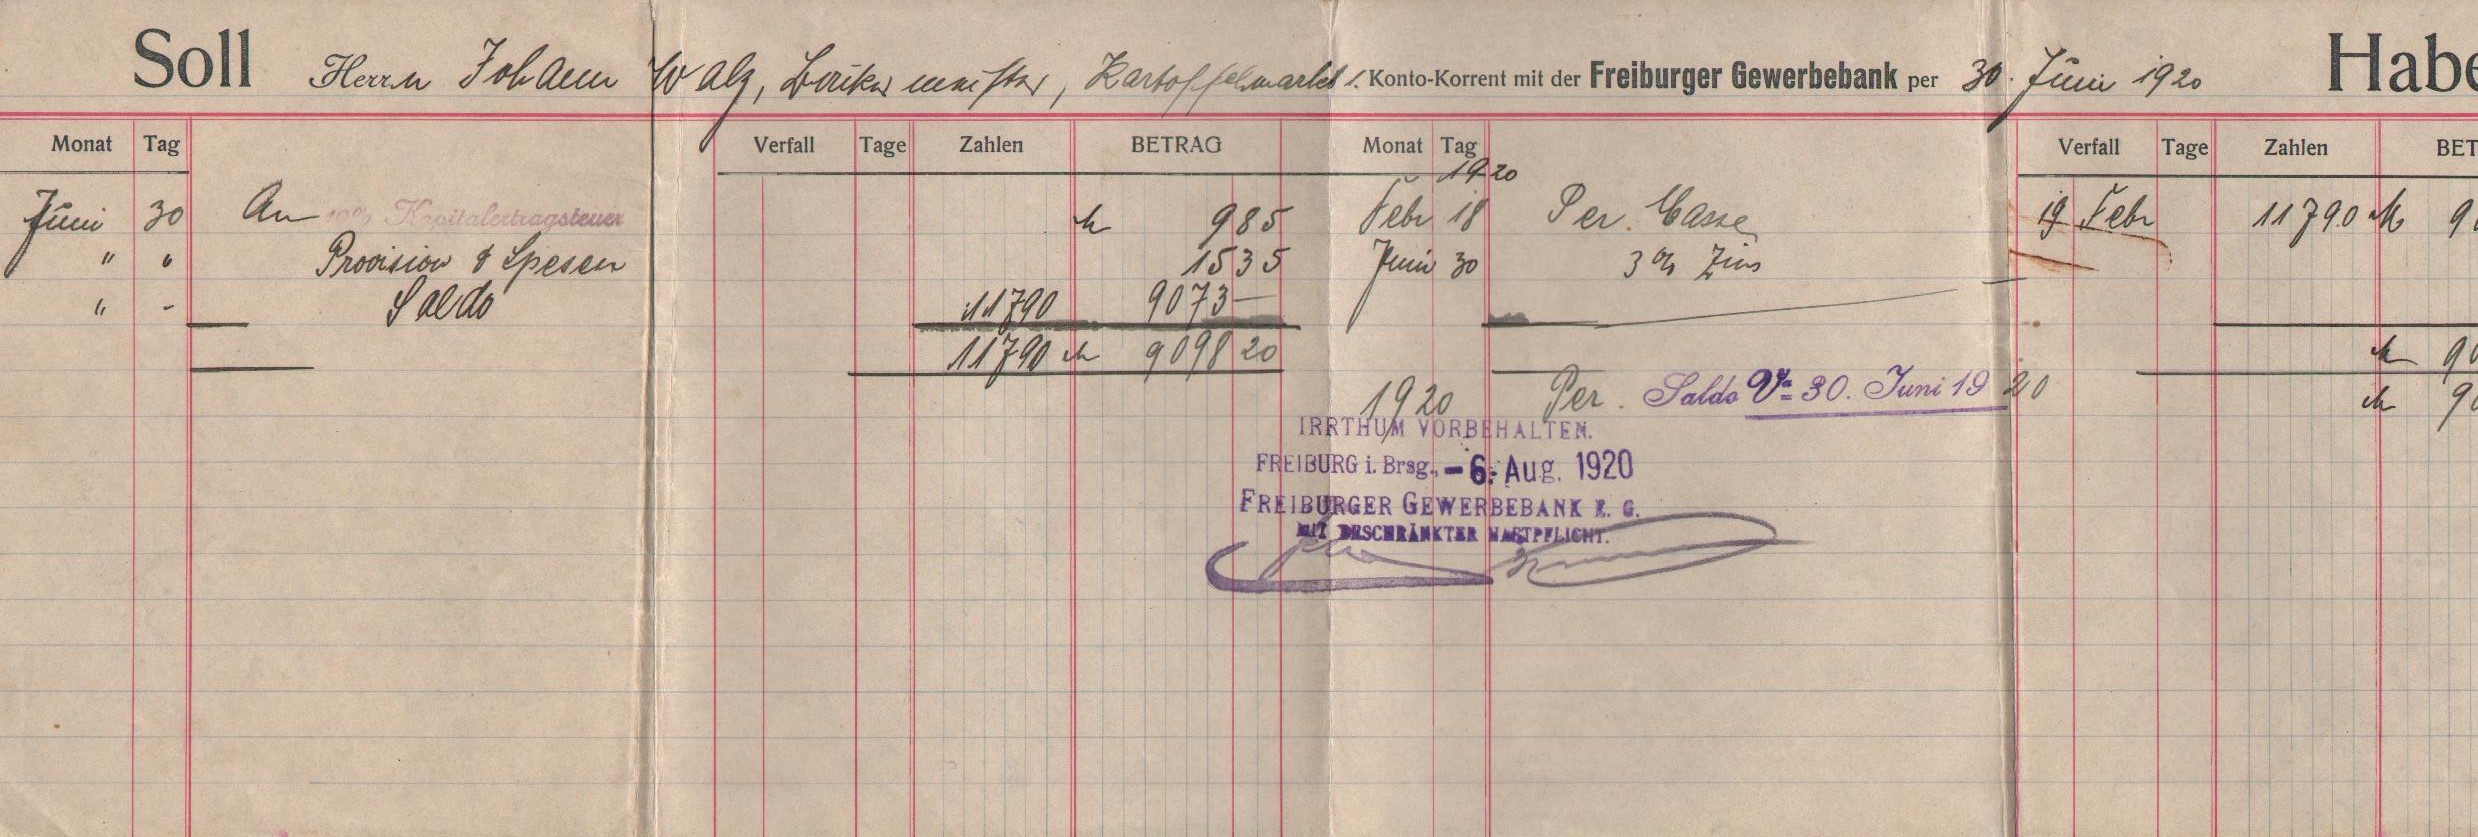 Soll Herrn Johann Walz, Bäckermeister, Kartoffelmarkt 1. Konto-Korrent mit der Freiburger Gewerbebank per 30. Juni 1920 Habe
Monat Tag Verfall Tage Zahlen BETRAG Monat Tag Verfall Tage Zahlen BET
1920
Juni 30 An 10% Kapitalertragsteuer M 9 85 Febr 18 Per Casse 19 Febr 11790 M 90
" " Provision & Spesen 15 35 Juni 30 3% Zins
" - Saldo 11790 9073 —
11790 M 9098 20 M 90
1920 Per Saldo Va 30. Juni 1920 M 90
IRRTHUM VORBEHALTEN.
FREIBURG i. Brsg., -6. Aug. 1920
FREIBURGER GEWERBEBANK E. G.
MIT BESCHRÄNKTER HAFTPFLICHT.